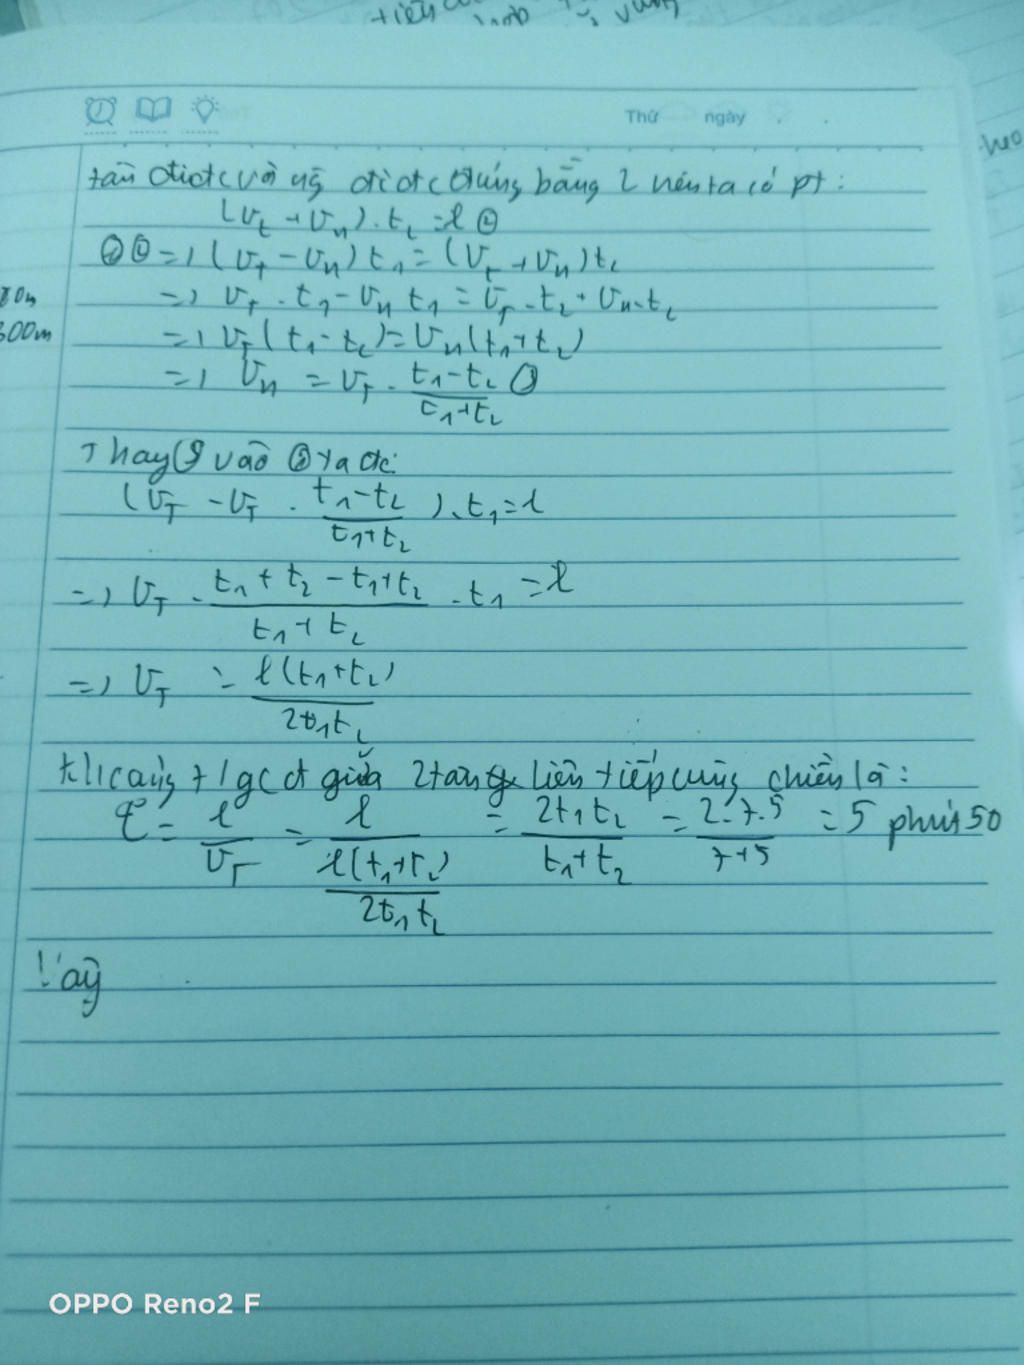 tiếp
Thứ ngày
tàu điđc và ng đi đc đúng bằng l nên ta có pt:
(v_t + v_n).t_2 = l ②
①② => (v_T - v_n) t_1 = (v_T + v_n) t_2
=> v_T . t_1 - v_n t_1 = v_T . t_2 + v_n . t_2
80m
300m
=> v_T (t_1 - t_2) = v_n (t_1 + t_2)
=> v_n = v_T . \frac{t_1 - t_2}{t_1 + t_2} ③
Thay ③ vào ta đc:
(v_T - v_T . \frac{t_1 - t_2}{t_1 + t_2}) . t_1 = l
=> v_T . \frac{t_1 + t_2 - t_1 + t_2}{t_1 + t_2} . t_1 = l
=> v_T = \frac{l(t_1 + t_2)}{2t_1t_2}
khoảng t/gc đ giữa 2 tàu liên tiếp cùng chiều là:
t = \frac{l}{v_T} = \frac{l}{\frac{l(t_1 + t_2)}{2t_1t_2}} = \frac{2t_1t_2}{t_1 + t_2} = \frac{2.7.5}{7+5} = 5 phút 50
Vậy
OPPO Reno2 F